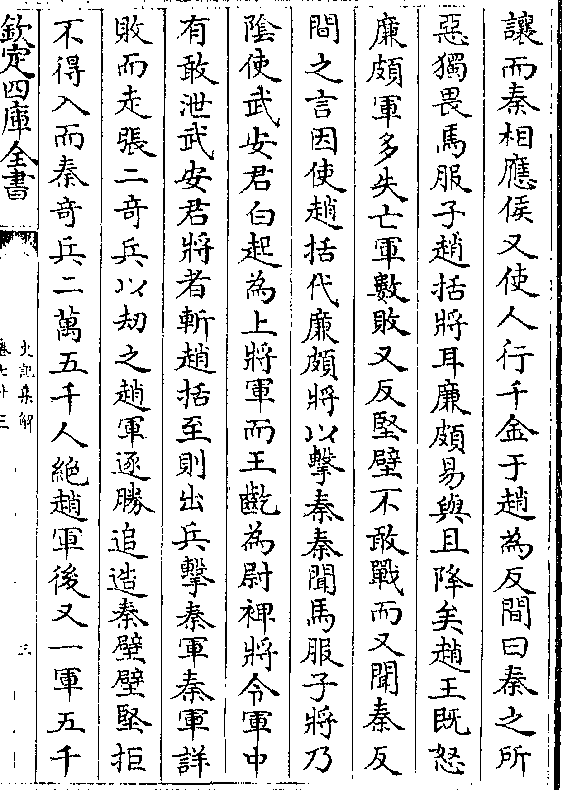 讓而秦相應侯又使人行千金于趙為反間曰秦之所
惡獨畏馬服子趙括將耳廉頗易與且降矣趙王既怒
廉頗軍多失亡軍數敗又反堅壁不敢戰而又聞秦反
間之言因使趙括代廉頗將以擊秦秦聞馬服子將乃
陰使武安君白起為上將軍而王齕為尉裨將令軍中
有敢泄武安君將者斬趙括至則出兵擊秦軍秦軍詳
敗而走張二竒兵以刼之趙軍逐勝追造秦壁壁堅拒
不得入而秦竒兵二萬五千人絶趙軍後又一軍五千
欽定四庫全書
史記集解
卷七十三
三